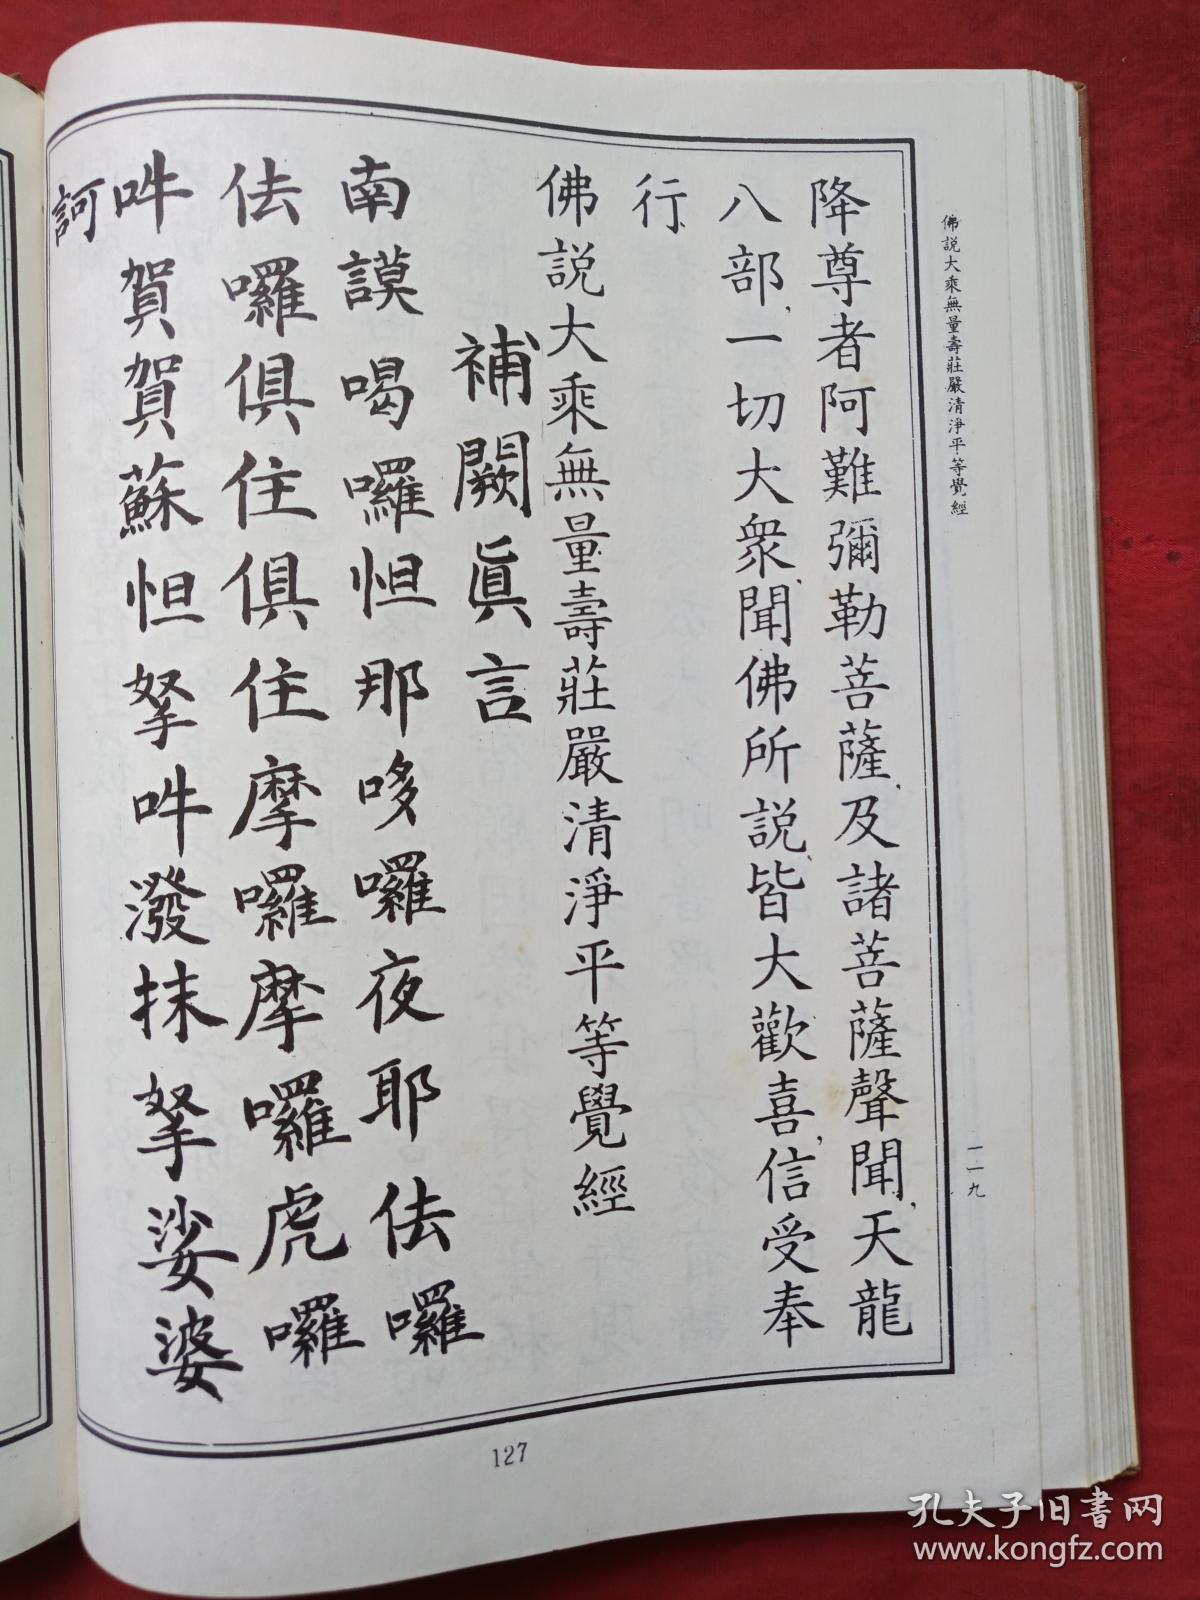 佛説大乘無量壽莊嚴清淨平等覺經
一一九
降尊者阿難彌勒菩薩、及諸菩薩聲聞、天龍
八部、一切大衆、聞佛所説、皆大歡喜、信受奉
行、
佛説大乘無量壽莊嚴清淨平等覺經
補闕眞言
南謨喝囉怛那哆囉夜耶佉囉
佉囉俱住俱住摩囉摩囉虎囉
吽賀賀蘇怛拏吽潑抹拏娑婆
訶
127
孔夫子旧书网
www.kongfz.com